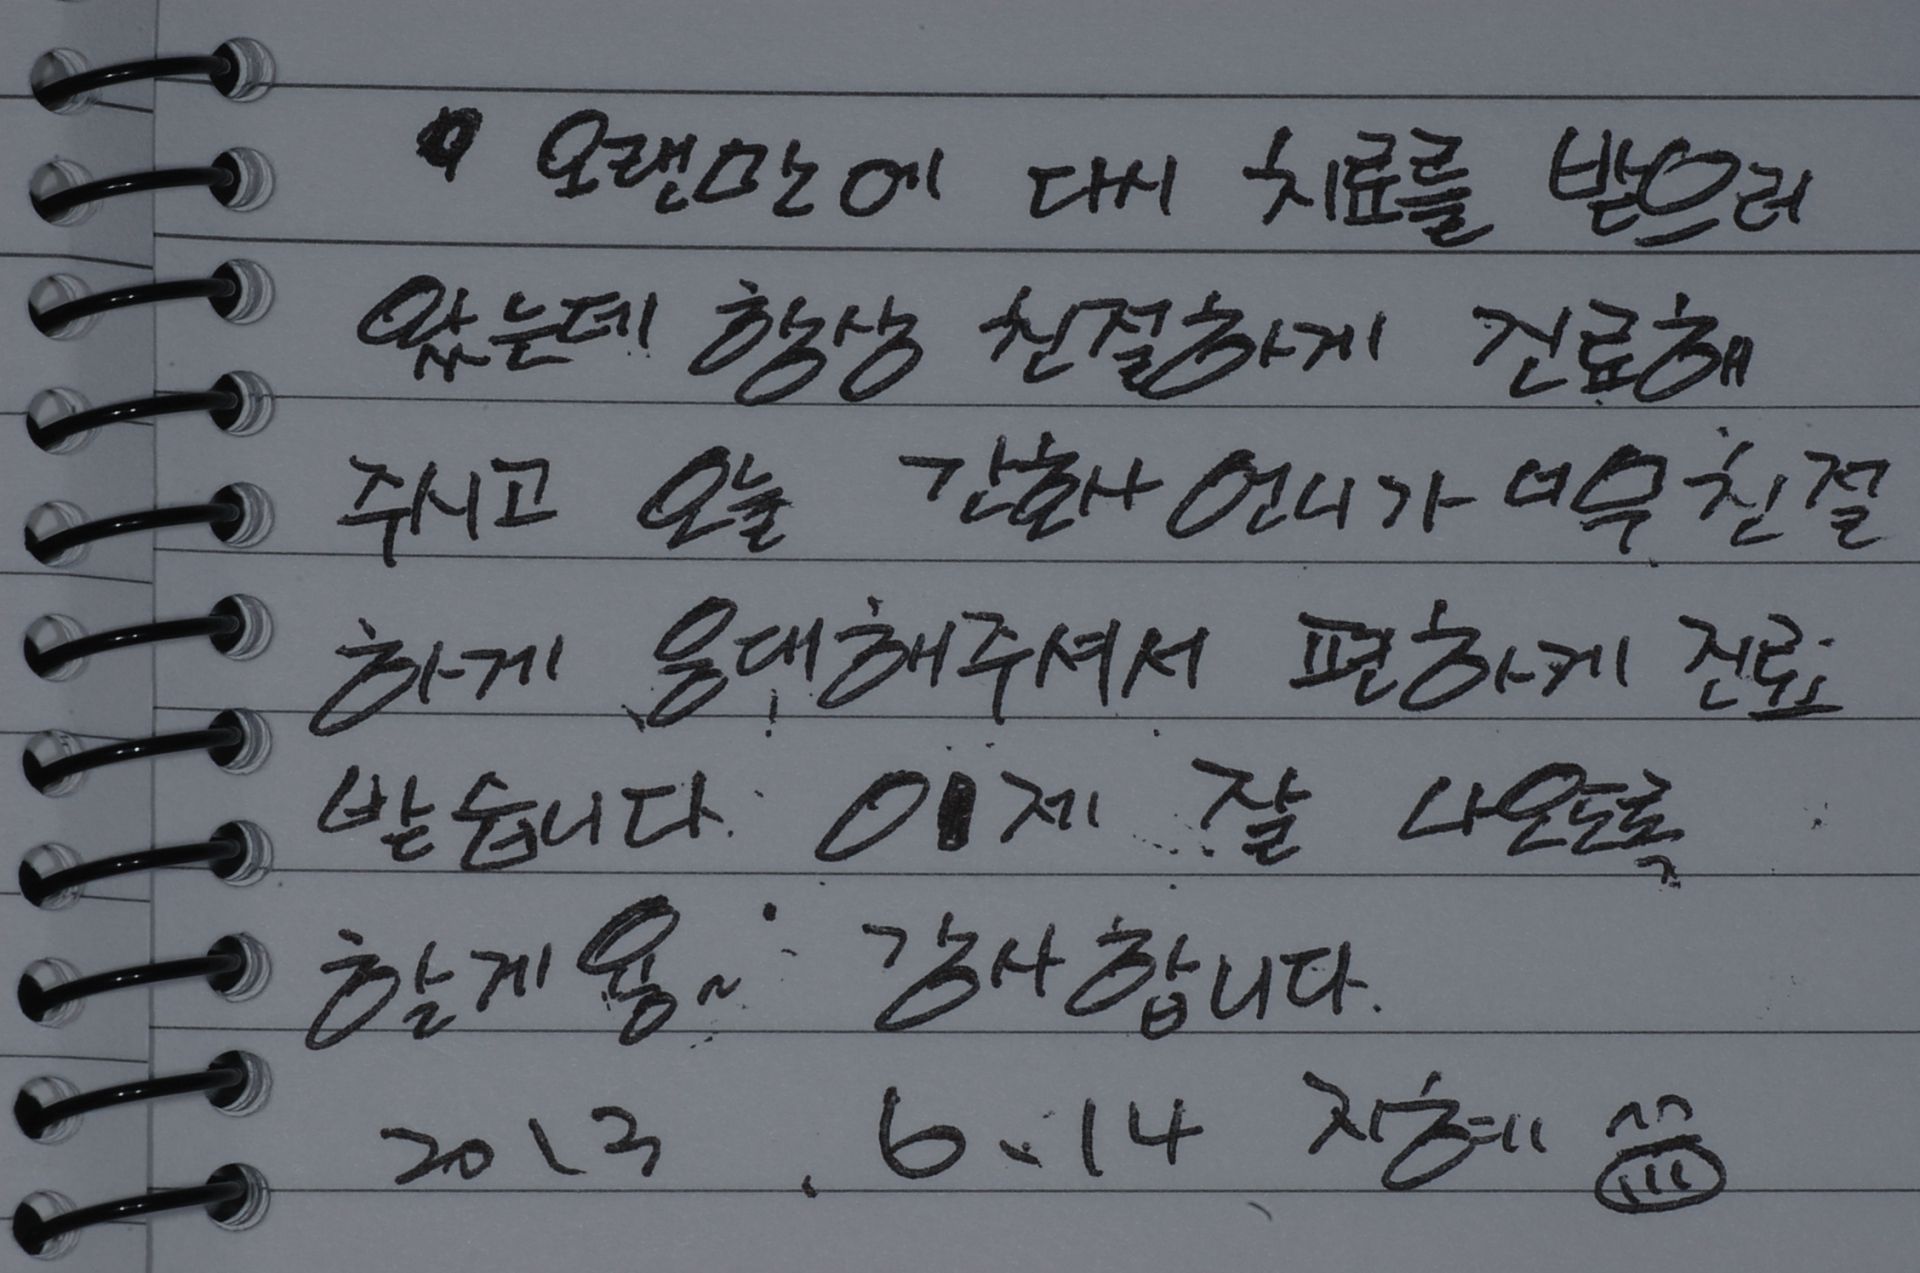 오랜만에 다시 치료를 받으러
왔는데 항상 친절하게 진료해
주시고 오늘 간호사 언니가 너무 친절
하게 응대해주셔서 편하게 진료
받습니다. 이제 잘 나오도록
할게용~ 감사합니다.
2013. 6. 14 지혜